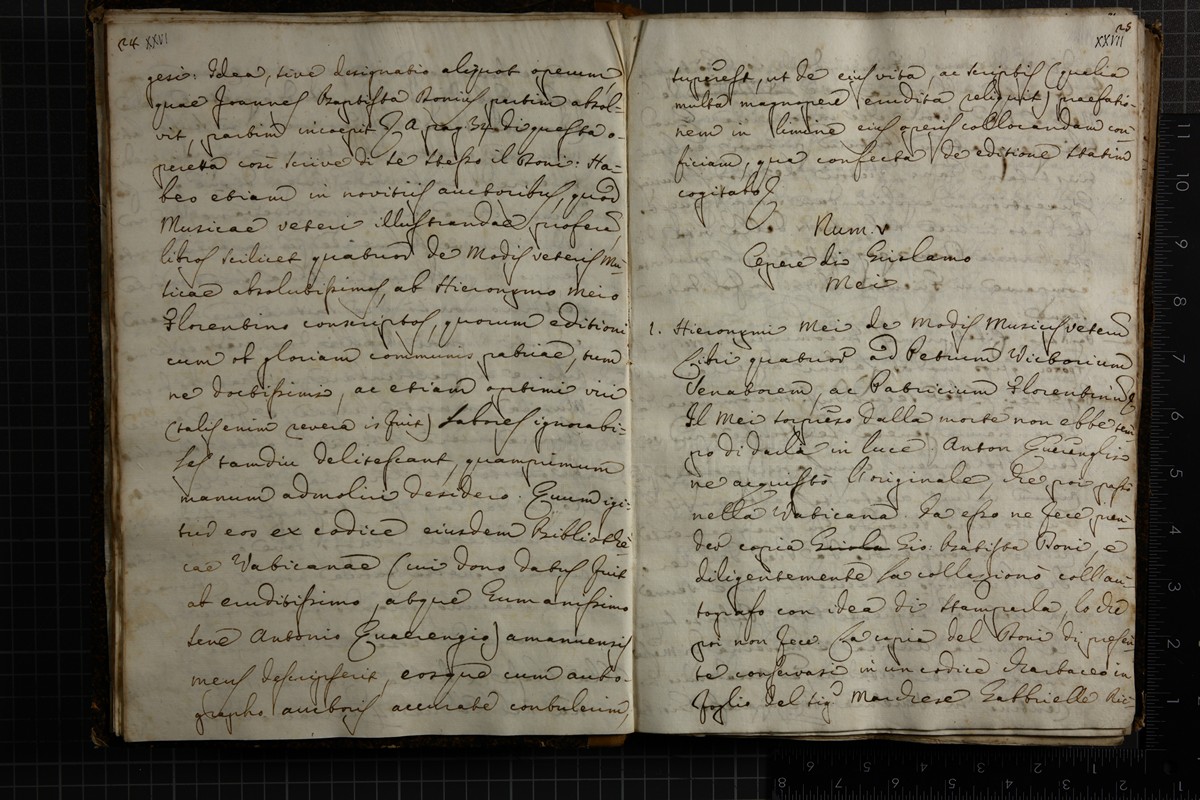 24 XXVI
gesi: Idea, sive designatio aliquot operum,
quae Joannes Baptista Bonius partim absol-
vit, partim incoepit. A pag. 34. di questa o-
peretta così scrive di se stesso il Boni: Ha-
beo etiam in novitiis auctoribus, quod
Musicae veteri illustrandae proferam,
libros scilicet quatuor de Modis veteris Mu-
sicae absolutissimos, ab Hieronymo Meio
Florentino conscriptos, quorum editioni
cum ob gloriam communis patriae, tum
ne doctissimi, ac etiam optimi viri
(talis enim revera is fuit) labores ignorabi-
les tamdiu delitescant, quamprimum
manum admoliri desidero. Quum igi-
tur eos ex codice eiusdem Bibliothe-
cae Vaticanae (cui dono datus fuit
ab eruditissimo, atque humanissimo
sene Antonio Quaerengio) amanuensis
meus descripserit, eosque cum auto-
grapho auctoris accurate contulerim,
25
XXVII
superest, ut de eius vita, ac scriptis (qualia
multa magnopere erudita reliquit) praefatio-
nem in limine eius operis collocandam con-
ficiam, qua confecta de editione statim
cogitabo.
Num. V
Opere di Girolamo
Mei.
1. Hieronymi Mei de Modis Musicis veterum
Libri quatuor ad Petrum Victorium
Senatorem, ac Patricium Florentinum.
Il Mei sorpreso dalla morte non ebbe tem
po di darla in luce. Anton Querengho
ne acquistò l'originale, che poi passò
nella Vaticana. Da esso ne fece pren
der copia Gio: Batista Boni, e
diligentemente la collazionò coll'au-
tografo con idea di stamparla, lo che
poi non fece. La copia del Boni di presen
te conservasi in un codice chartaceo in
foglio del Sig. Marchese Gabbrielle Ric